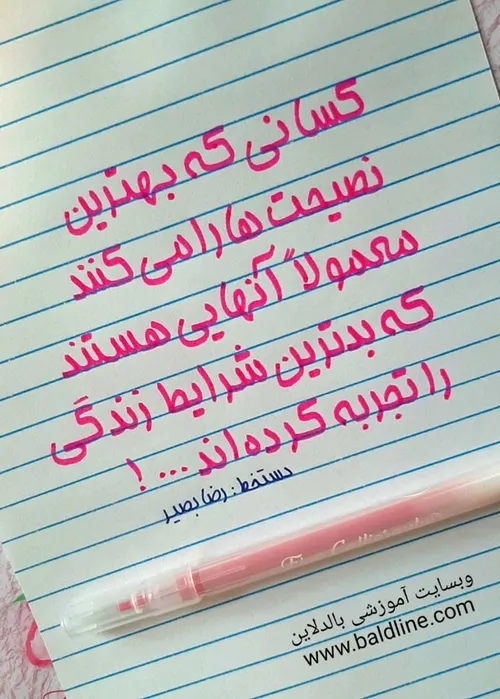 کسانی که بهترین
نصیحت ها را می کنند
معمولاً آنهایی هستند
که بدترین شرایط زندگی
را تجربه کرده اند ... !
دستخط : رضا بصیر
وبسایت آموزشی بالدلاین
www.baldline.com